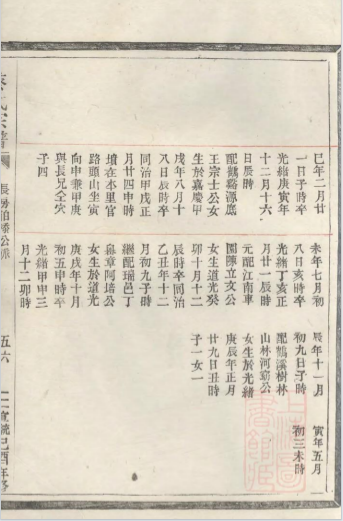 巳年二月廿
一日子時卒
光緒庚寅年
十二月十六
日辰時
配鶴谿源底
王宗士公女
生於嘉慶甲
戌年八月十
八日辰時卒
同治甲戌正
月廿四申時
墳在本里官
路頭山坐寅
向申兼甲庚
與長兄仝穴
子四
未年七月初
八日亥時卒
光緒丁亥正
月廿一辰時
元配江南東
園陳立亥公
女生道光癸
卯十月十二
辰時卒同治
乙丑年十二
月初九子時
繼配瑞邑丁
嶴章阿培公
女生於道光
庚戌年十月
初五申時卒
光緒甲申三
月十二卯時
辰年十一月
初九日子時
配鶴溪樹林
山林河公
女生於光緒
庚辰年正月
廿九日丑時
子一女一
寅年五月
初三未時
宗譜
長房伯公派
五六
宣統己酉年修